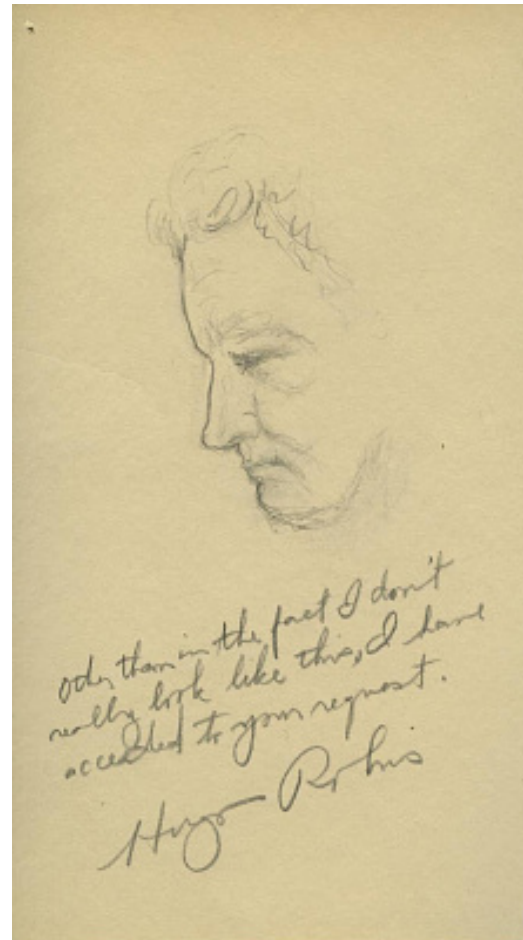 Other than in the fact I don't
really look like this, I have
acceeded to your request.
Hugo Robus